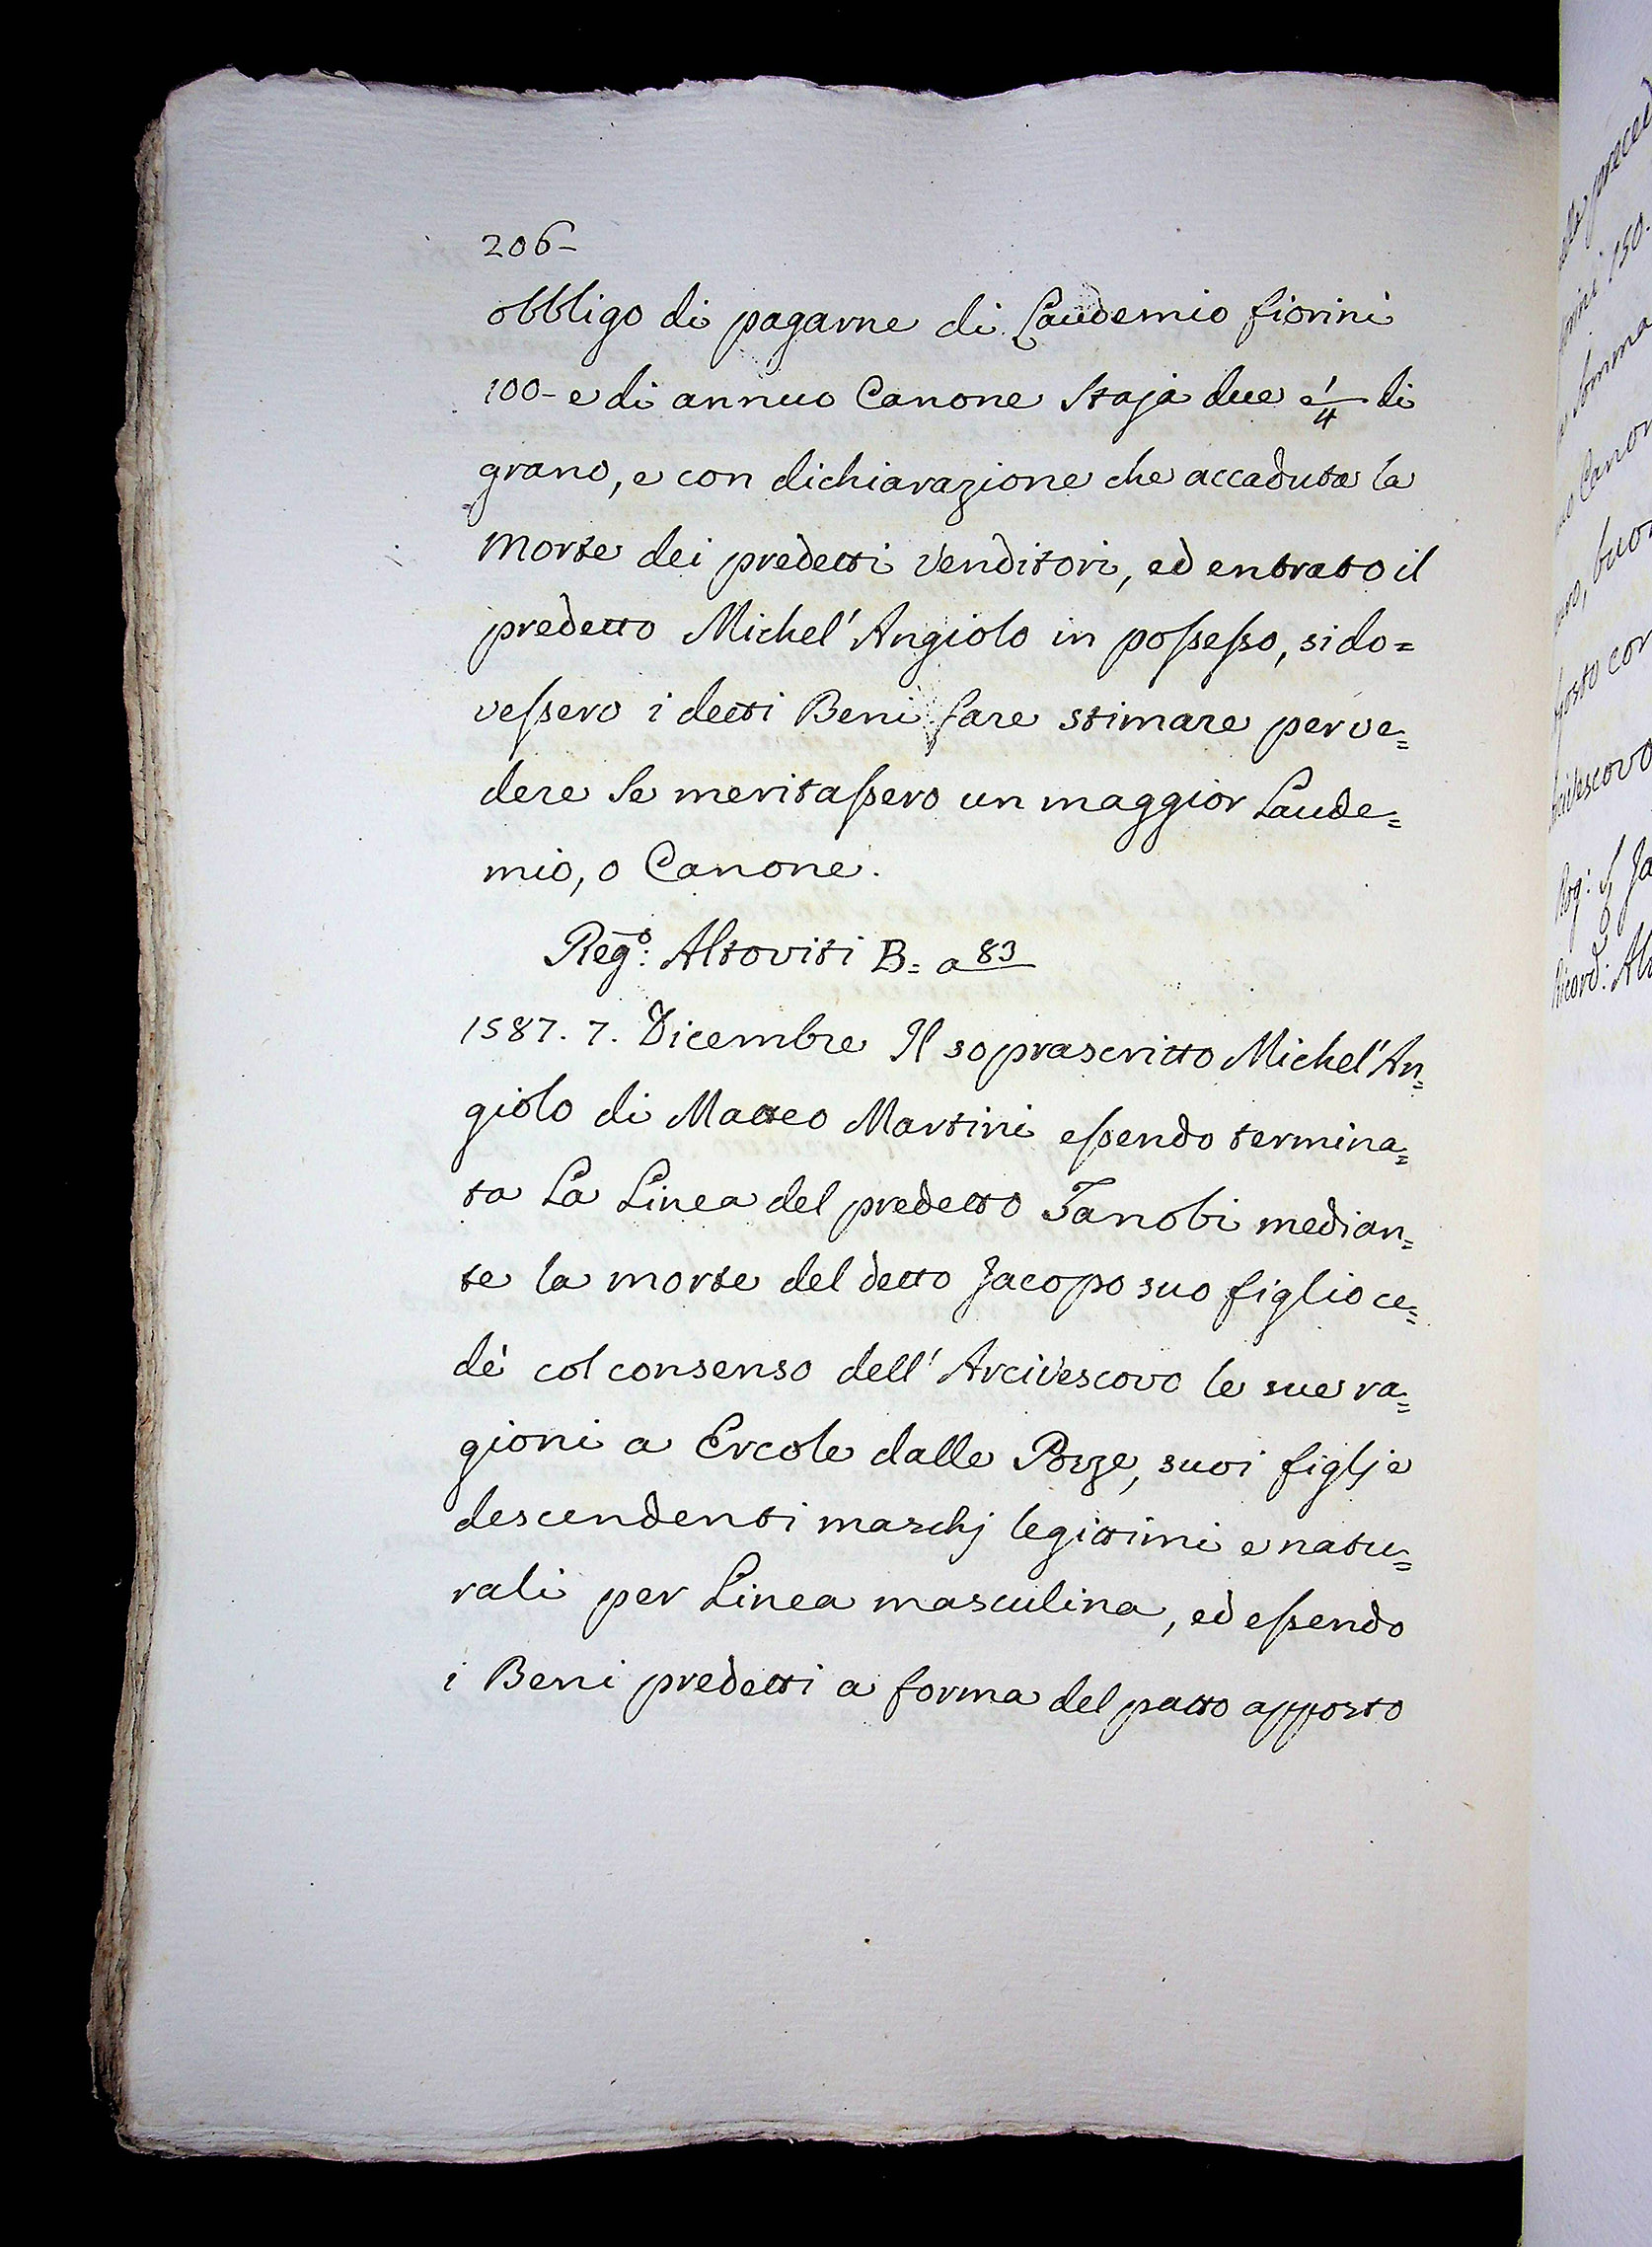 206-
obbligo di pagarne di Laudemio fiorini
100- e di annuo Canone Staja due e 1/4 di
grano, e con dichiarazione che accaduta la
Morte dei predetti Venditori, ed entrato il
predetto Michel'Angiolo in possesso, si do=
vessero i detti Beni fare stimare per ve=
dere se meritassero un maggior Laude=
mio, o Canone.
Reg.o: Altoviti B= a 83
1587. 7. Dicembre Il soprascritto Michel'An=
giolo di Matteo Martini essendo termina=
ta La Linea del predetto Zanobi median=
te la morte del detto Jacopo suo figlio ce=
dè col consenso dell'Arcivescovo le sue ra=
gioni a Ercole dalle Pozze, suoi figlj e
descendenti maschj legittimi e natu=
rali per Linea masculina, ed essendo
i Beni predetti a forma del patto apposto